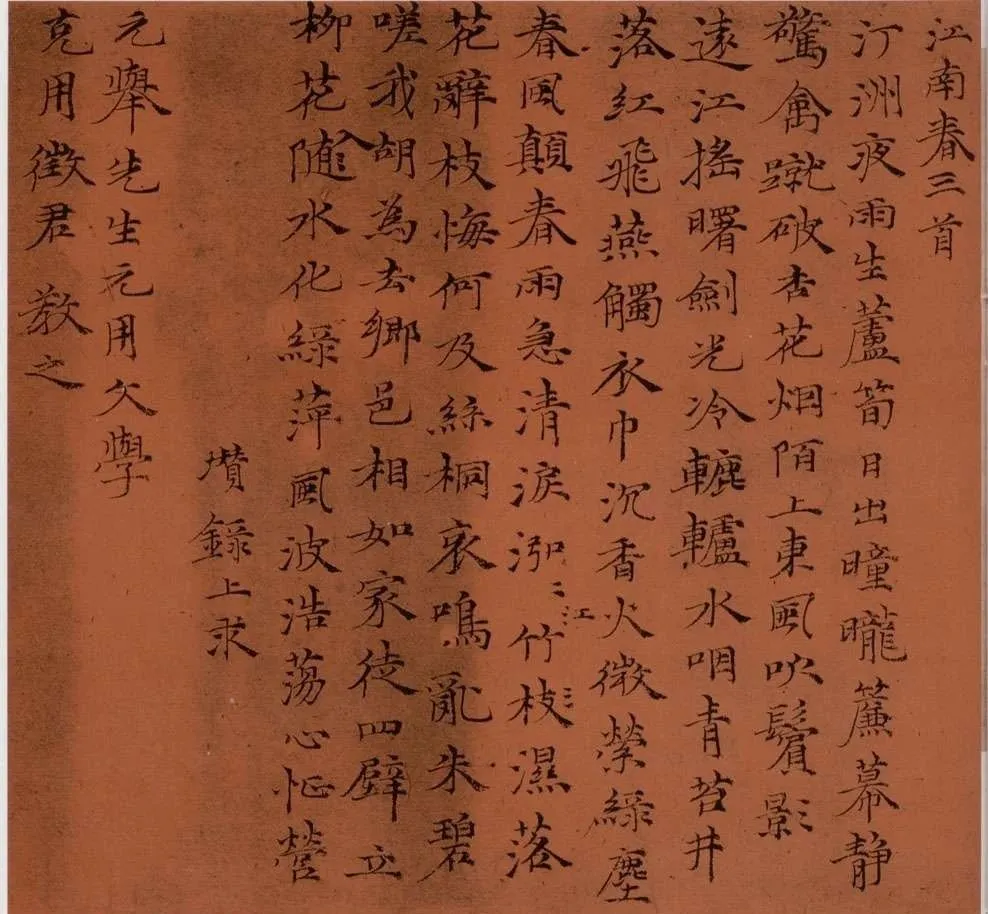 江南春三首
汀洲夜雨生蘆筍日出曈曨簾幕静
驚禽蹴破杏花烟陌上東風吹鬢影
遠江搖曙劍光冷轆轤水咽青苔井
落紅飛燕觸衣巾沉香火微縈綠塵
春風顛春雨急清淚泓〻江竹枝濕落
花辭枝悔何及絲桐哀鳴亂朱碧
嗟我胡為去鄉邑相如家徒四壁立
柳花入随水化綠萍風波浩蕩心怔營
瓚錄上求
元舉先生元用文學
克用徵君教之